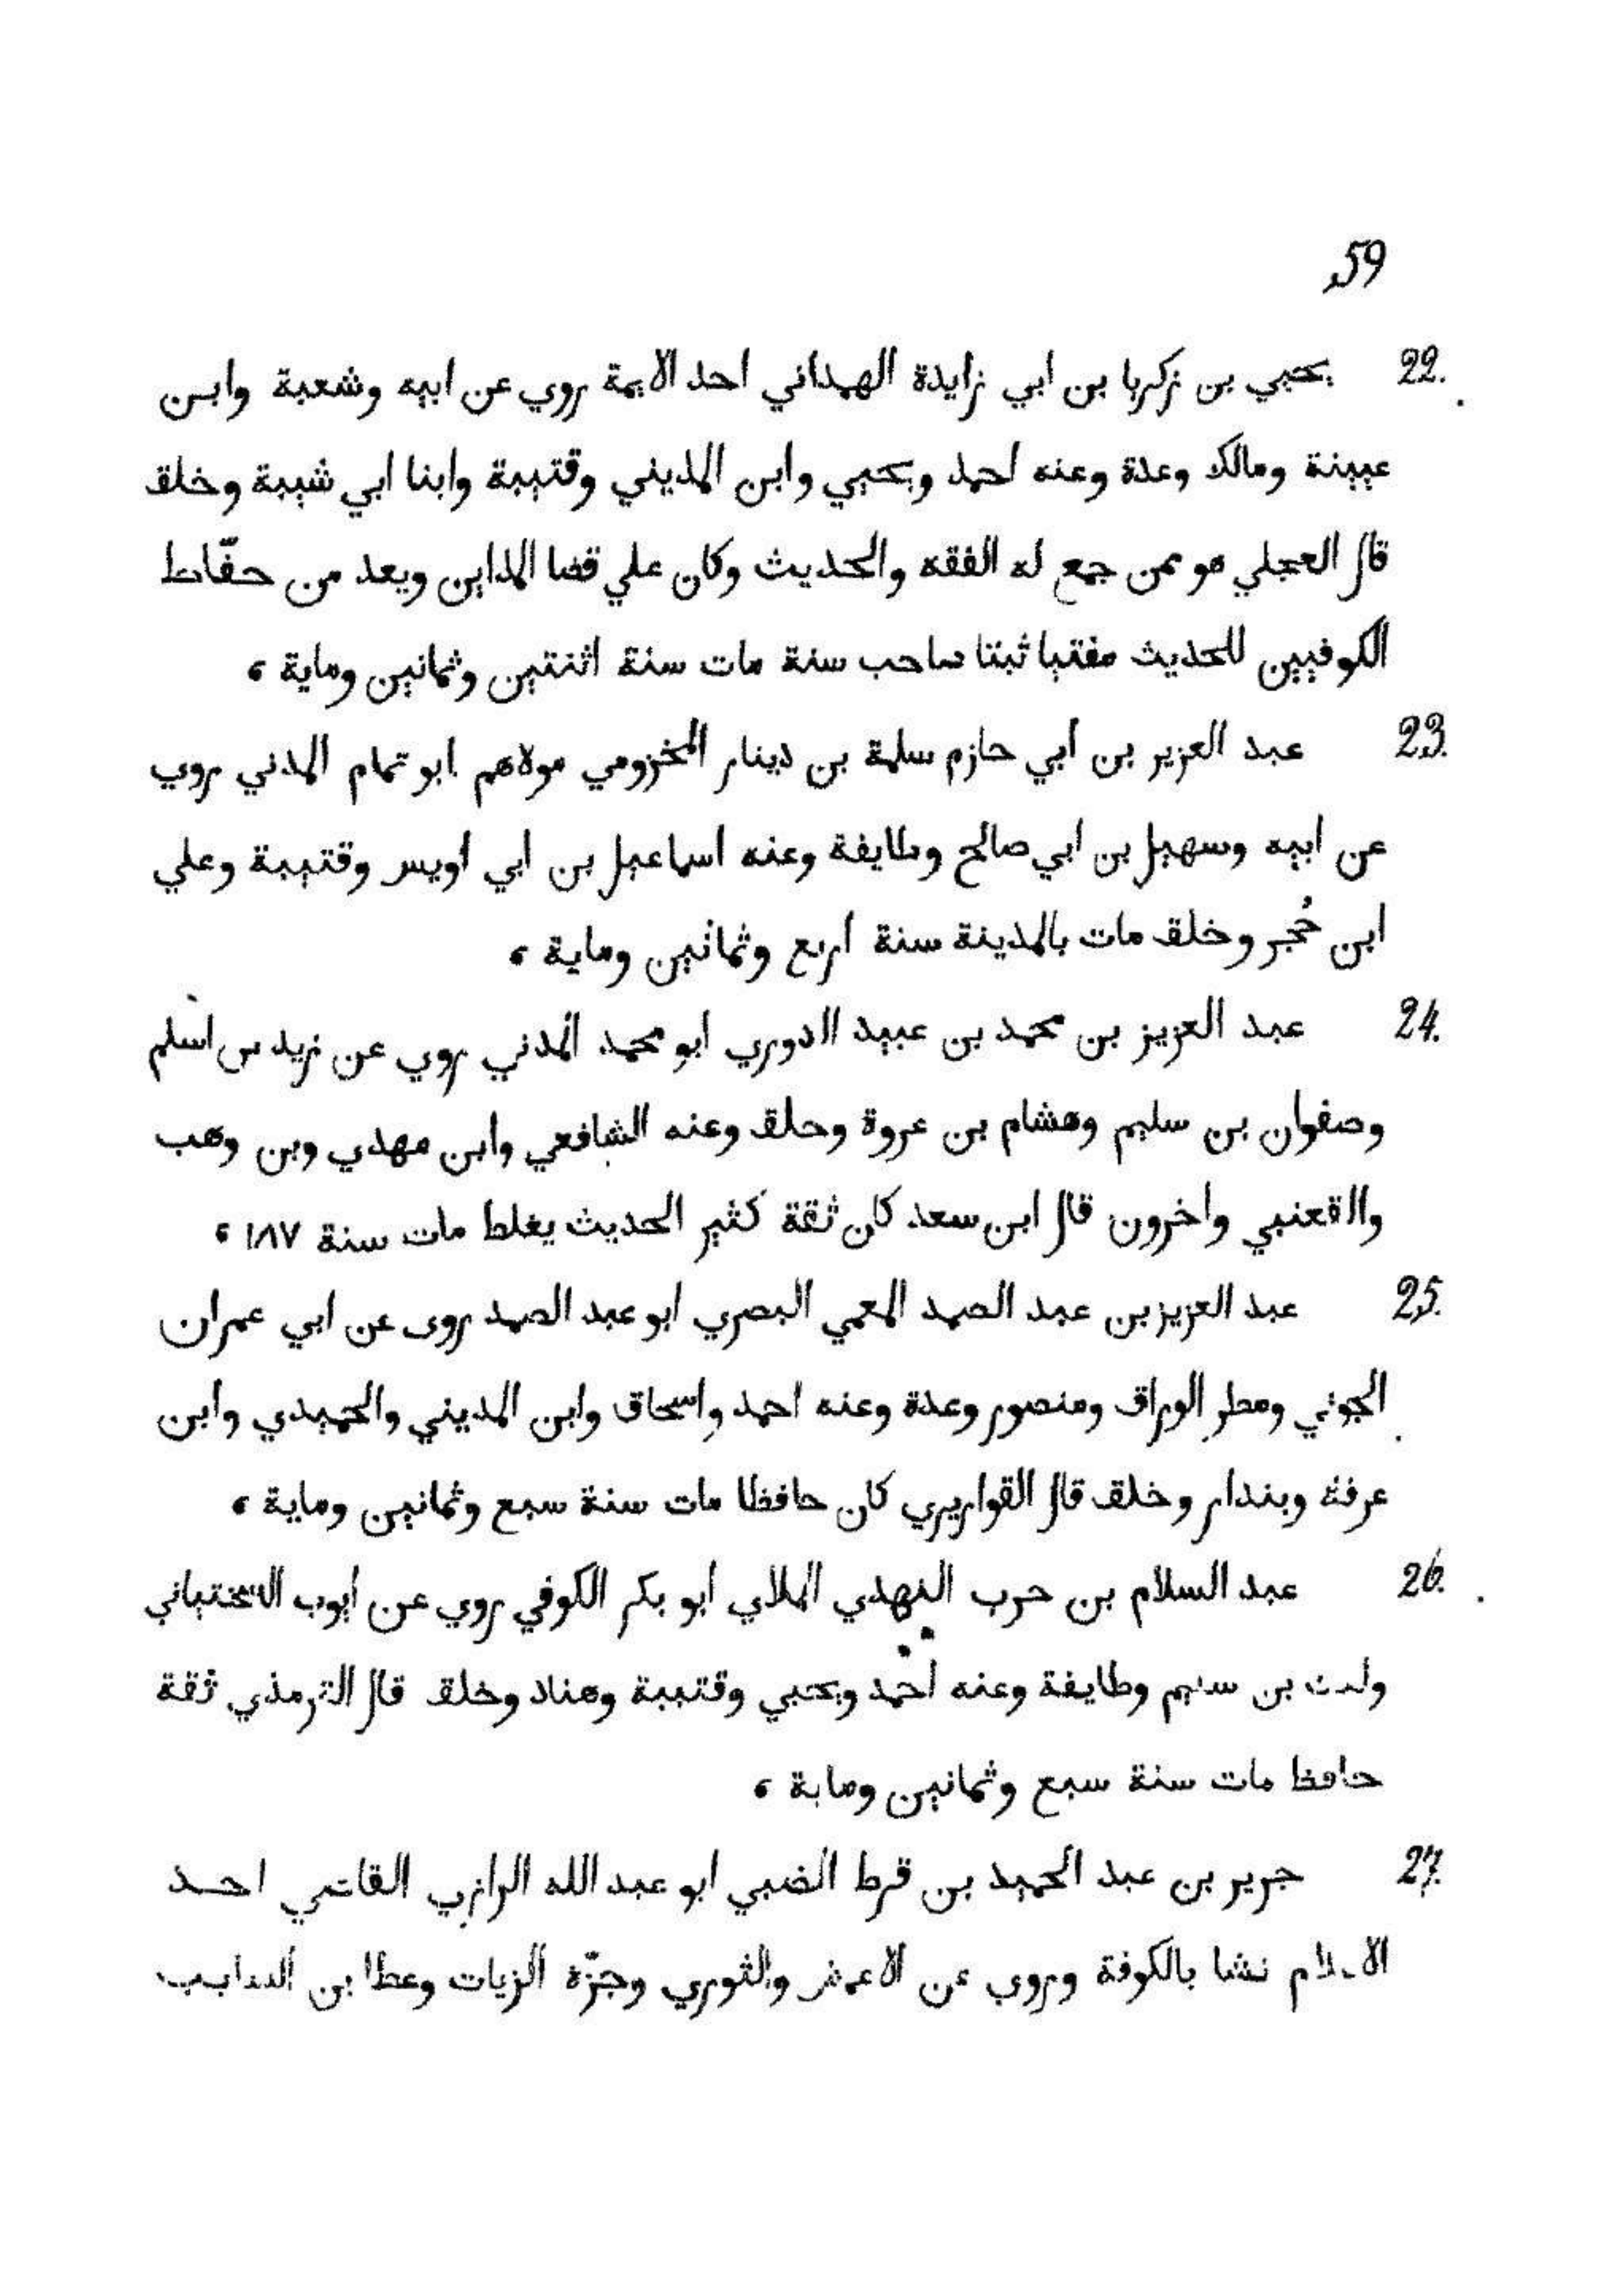 59
22. يحيي بن زكريا بن ابي زايدة الهمداني احد الايمة روي عن ابيه وشعبة وابن
عيينة ومالك وعدة وعنه احمد ويحيي وابن المديني وقتيبة وابنا ابي شيبة وخلق
قال العجلي هو ممن جمع له الفقه والحديث وكان علي قضا المداين ويعد من حفّاظ
الكوفيين للحديث مفتيا ثبتا صاحب سنة مات سنة اثنتين وثمانين وماية ،
23. عبد العزيز بن أبي حازم سلمة بن دينار المخزومي مولاهم ابو تمام المدني روي
عن ابيه وسهيل بن ابي صالح وطايفة وعنه اسماعيل بن ابي اويس وقتيبة وعلي
ابن حُجر وخلق مات بالمدينة سنة اربع وثمانين وماية ،
24. عبد العزيز بن محمد بن عبيد الدوري ابو محمد المدني روي عن زيد بن اسلم
وصفوان بن سليم وهشام بن عروة وحلق وعنه الشافعي وابن مهدي وبن وهب
والقعنبي واخرون قال ابن سعد كان ثقة كثير الحديث يغلط مات سنة ١٨٧ ،
25. عبد العزيز بن عبد الصمد العمي البصري ابو عبد الصمد روى عن ابي عمران
الجوني ومطر الوراق ومنصور وعدة وعنه احمد واسحاق وابن المديني والحميدي وابن
عرفة وبندار وخلق قال القواريري كان حافظا مات سنة سبع وثمانين وماية ،
26. عبد السلام بن حرب النهدي الملاي ابو بكر الكوفي روي عن ايوب السختياني
بن سليم وطايفة وعنه احمد ويحيي وقتيبة وهناد وخلق قال الترمذي ثقة
حافظ مات سنة سبع وثمانين وماية ،
27. جرير بن عبد الحميد بن قرط الضبي ابو عبد الله الرازي القاضي احد
نشا بالكوفة وروي عن الاعمش والثوري وحمزة الزيات وعطا بن السايب